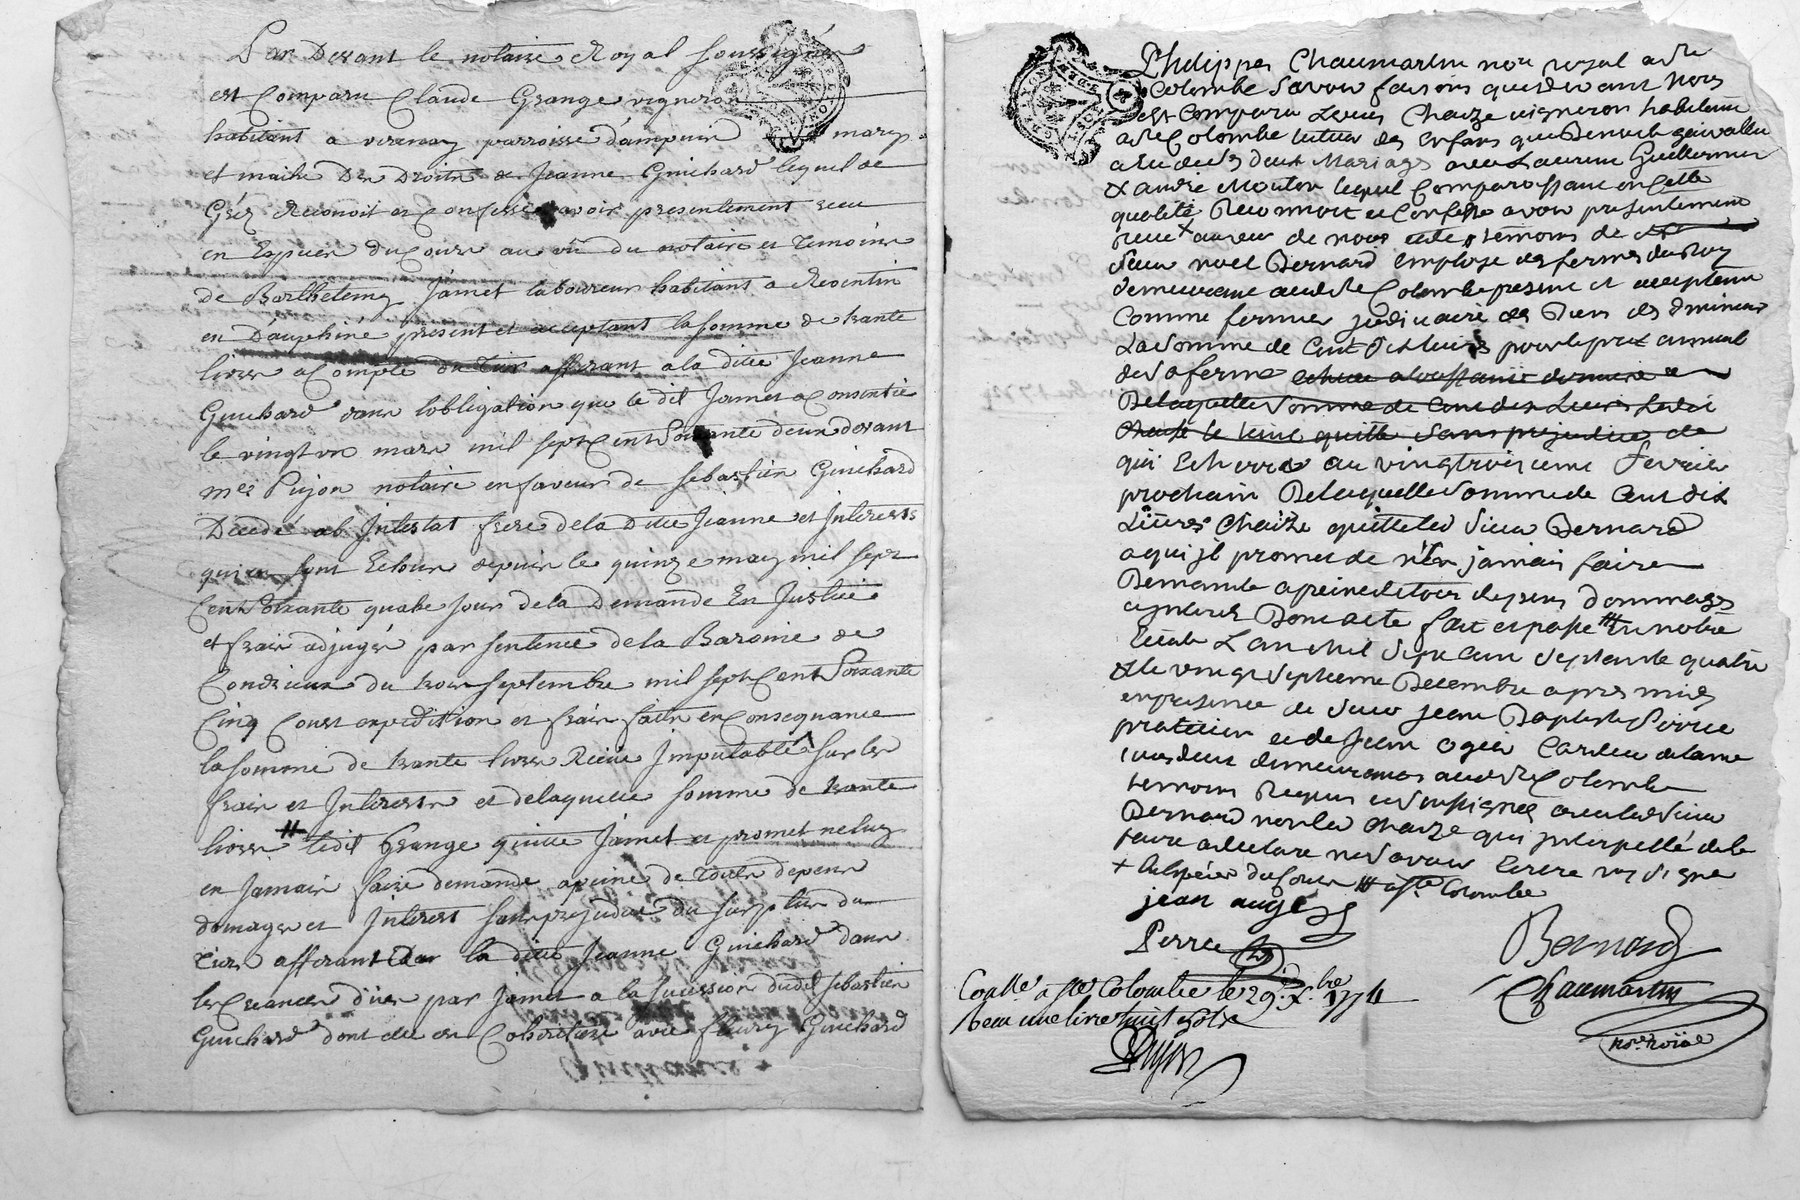 Par Devant le notaire Royal soussigné
est Comparu Claude Grange vigneron
habitant a verenay parroisse d'ampuis mary
et maitre Des Droits de Jeanne Guichard lequel de
Gréz Reconoit et Confesse avoir presentement receu
en Espuier du Cours au vû du notaire et Temoins
de Barthelemy Jamet laboureur habitant a Reventin
en Dauphiné present et acceptant la somme de trante
livres a Compte du Tiers afferant a la ditte Jeanne
Guichard dans l'obligation que le dit Jamet a Consentie
le vingt un mars mil sept Cent Soixante deux devant
mes Pujon notaire en faveur de sebastien Guichard
Décedé ab Intestat frere de la Ditte Jeanne et Interests
qui en sont Echeus depuis le quinze may mil sept
Cent soixante quatre Jour de la Demande En Justice
et frais adjugés par sentence de la Baronie de
Condrieux du trois septembre mil sept Cent Soixante
Cinq Coust expedition et frais faits en Consequance
la somme de trante livres Reciüe Imputable sur les
frais et Interests et de laquelle somme de trante
livres # ledit Grange quitte Jamet et promet ne luy
en Jamais faire demande a peine de Touts depens
domages et Interest sans prejudice du surplus du
Tiers afferant a la ditte Jeanne Guichard dans
les Creances dües par Jamet a la succession dudit sebastien
Guichard dont elle est Coheritiere avec fleury Guichard
Philippes Chaumartin nore royal a ste
Colombe Savoir faisons que devant Nous
est Comparu Louis Chaize vigneron habitant
a ste Colombe tuteur des Enfans que Benoite
a eu de ses deux Mariages avec Laurent Guillermin
& andré Mouton lequel Comparoissant en Cette
qualité Reconnoit et Confesse avoir presentement
receu x au veu de nous et des temoins de
Sieur noel Bernard Employé des fermes du Roy
demeurant aud ste Colombe present et acceptant
Comme fermier judiciaire des Biens des d mineurs
La Somme de Cent Dix Livres pour le prix annuel
de sa ferme
De laquelle Somme de Cent dix Livres Ledit
Chaize le tient quitte Sans prejudice de
qui Echerra au vingt troisieme fevrier
prochain De laquelle Somme de Cent dix
Livres Chaize quitte led Sieur Bernard
a qui jl promet de n'en jamais faire
Demande a peine de tous depens dommages
interets Dont acte fait et passé # En notre
Etude L'an Mil Sept Cent Septante quatre
& le vingt Septieme Decembre apres midy
en presence de Sieur Jean Baptiste Perrie
praticien et de Jean ogier Cardeur de laine
tous deux demeurants aud ste Colombe
temoins Requis et Soussignés avec led Sieur
Bernard non led Chaize qui jnterpellé de le
faire a declaré ne Savoir Ecrire ny Signer
+ En Espéces du Cours # a ste Colombe
jean augé
Perrie
Bernard
Chaumartin
nore roïal
Conlle a ste Colombe le 29. Xbre 1774
Receu une livre huit sols
Pujon